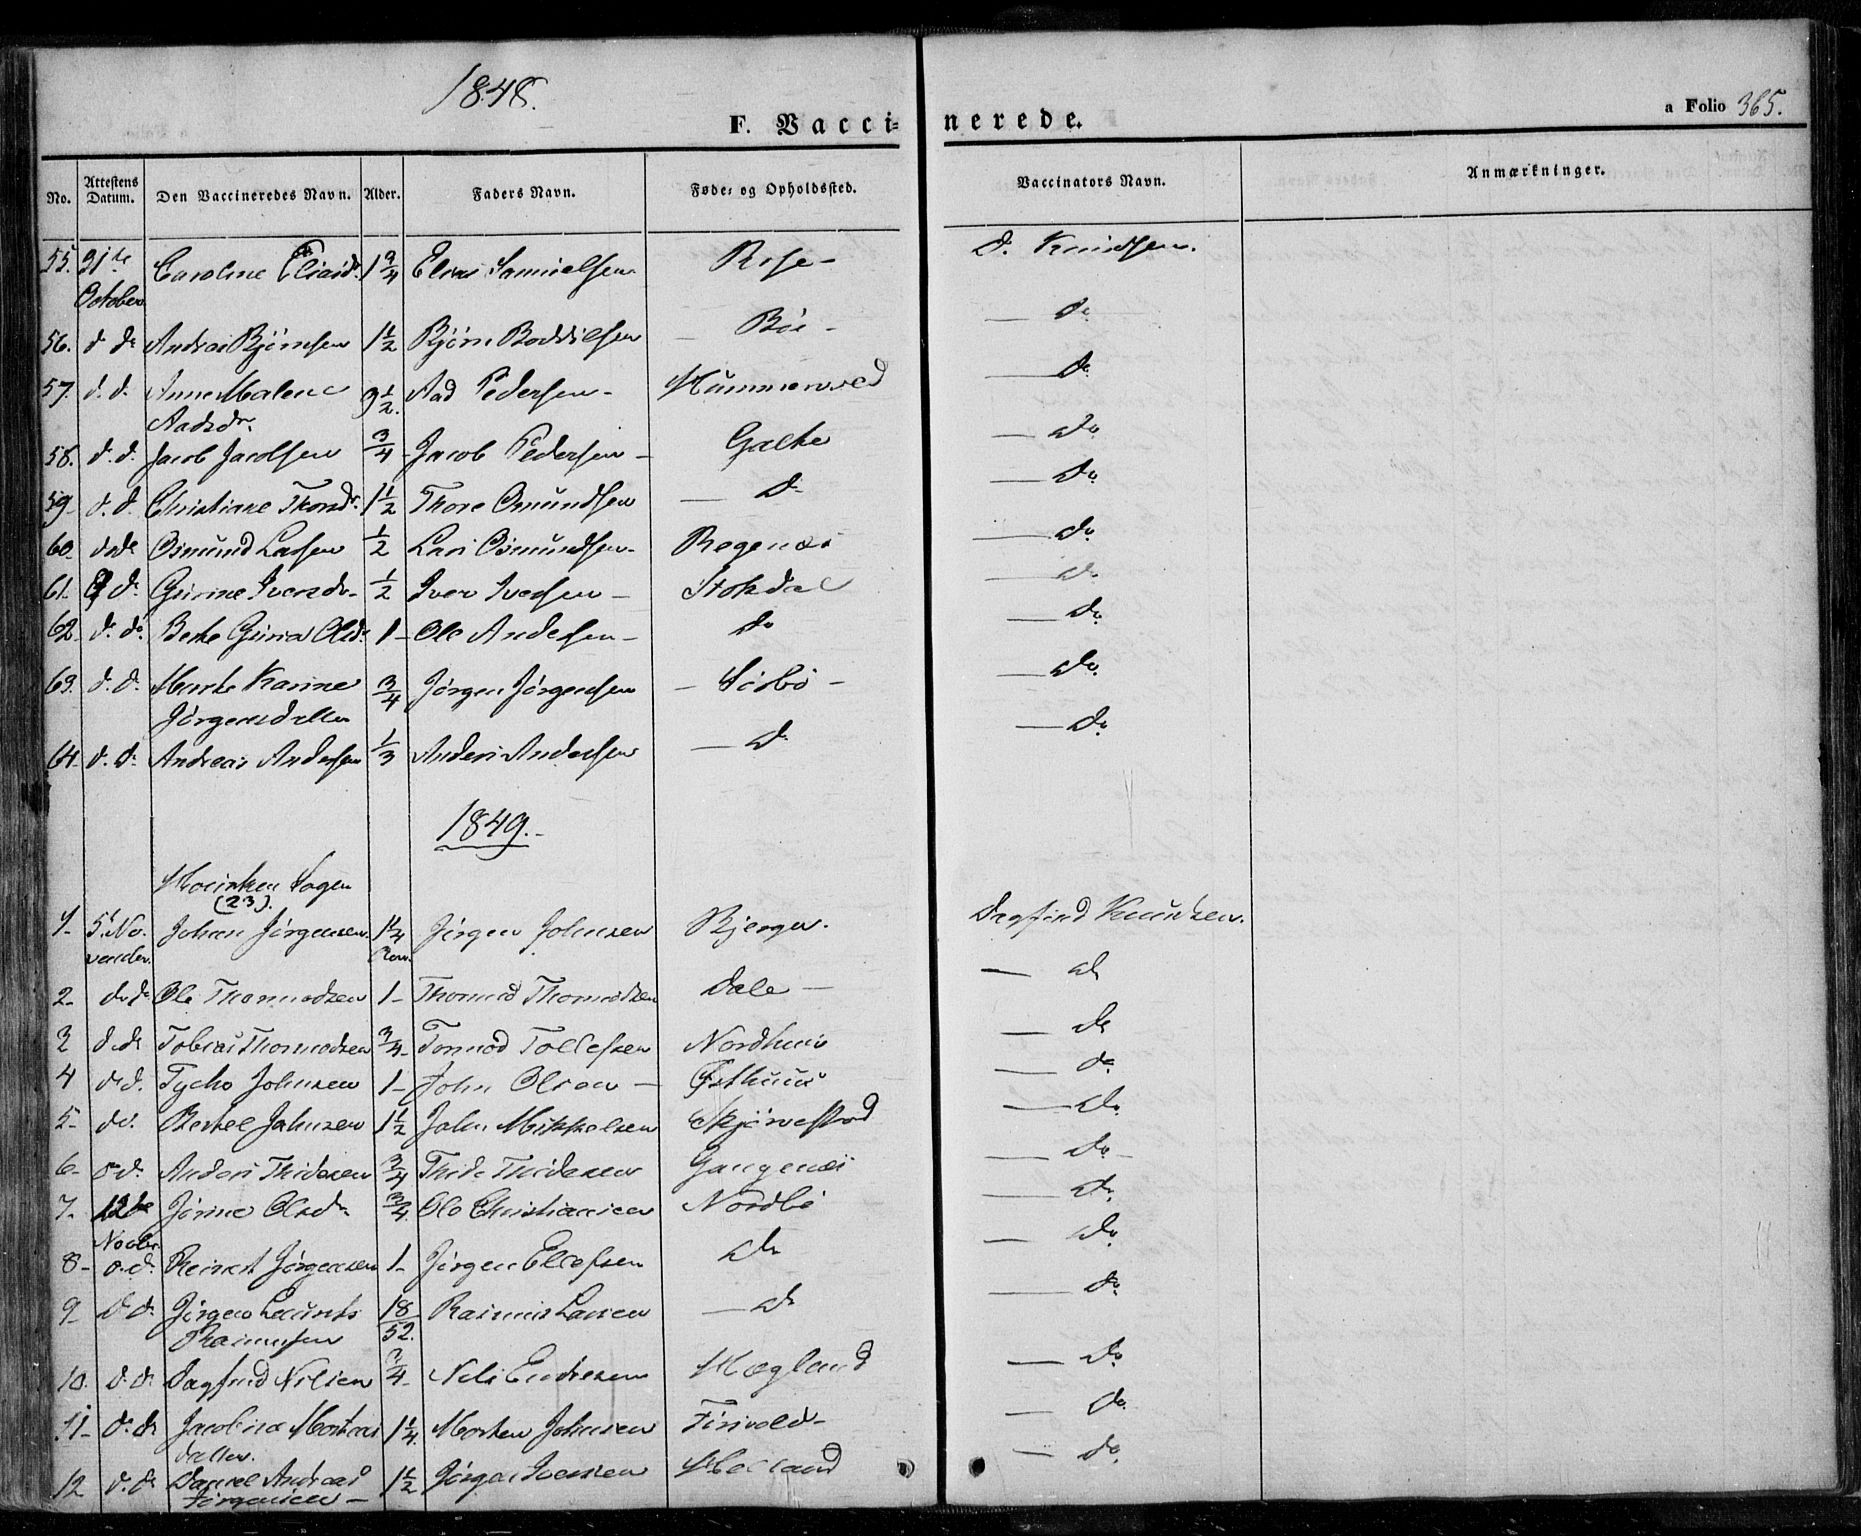 1848.
F. Vaccinerede.
a Folio 365.
No. Attestens Datum. Den Vaccineredes Navn. Alder. Faders Navn. Føde- og Opholdssted. Vaccinators Navn. Anmærkninger.
55. 31te October Caroline Eliasdr. 1 3/4 Elias Samuelsen Rose - D. Knudsen.
56. d. do Andreas Bjørnsen 1 1/2 Bjørn Boddilsen Bøe - — do
57. d. d. Anne Malene Aadsdr. 9 1/2. Aad Pedersen - — do
58. d. d. Jacob Jacobsen 3/4 Jacob Pedersen - Galte — do
59 - d. d. Christiane Thorsdr. 1 1/2 Thore Osmundsen — do — do
60. do do Osmund Larsen 1/2 Lars Osmundsen - Regenæs — do
61. d. Gurine Iversdr - 1/2 Iver Iversen - Stokdal — do
62 - d. do. Berte Gurina Olsdr. 1 - Ole Andersen - do — do
63. d. d. Marte Karine Jørgensdatter 3/4 Jørgen Jørgensen - Sørbø - — do
64 - d. d. Andreas Andersen 1/3 Anders Andersen — do — do
1849. -
Hovinken Sogen
(23).
1 - 5t November Johan Jørgensen. 1 1/4 Jørgen Johnsen Bjerger. Dagfind Knudsen.
2 - do do Ole Thormodsen 1 - Thormod Thormodsen Dale — — do
3 d. do Tobias Thormodsen 3/4 - Tormod Tollefsen Nordhuus — do
4 d. d. Tycho Johnsen 1 - John Olsen — Østhuus — do
5 - do. Berkel Johnsen 1 1/2 John Mikkelsen — do
6 - o. d. Anders Thidesen 3/4 Thide Thidesen Gangenæs — do -
7 - 12te Novbr Jørine Olsdr 3/4. Ole Christiansen Nordbø — do
8 - o. d. Reinert Jørgensen 1 - Jørgen Ellefsen do — do
9 - d. do Jørgen Laurits Rasmussen 18/52. Rasmus Larsen — do — do
10. d. d. Dagfind Nilsen 3/4 - Nels Endresen Hægland — do
11 - d. do Jacobine Mortensdatter. 1 1/4. Morten Johnsen — do
12 d. do Daniel Andreas Jørgensen - 1 1/2 Jørgen Iversen Helland — do